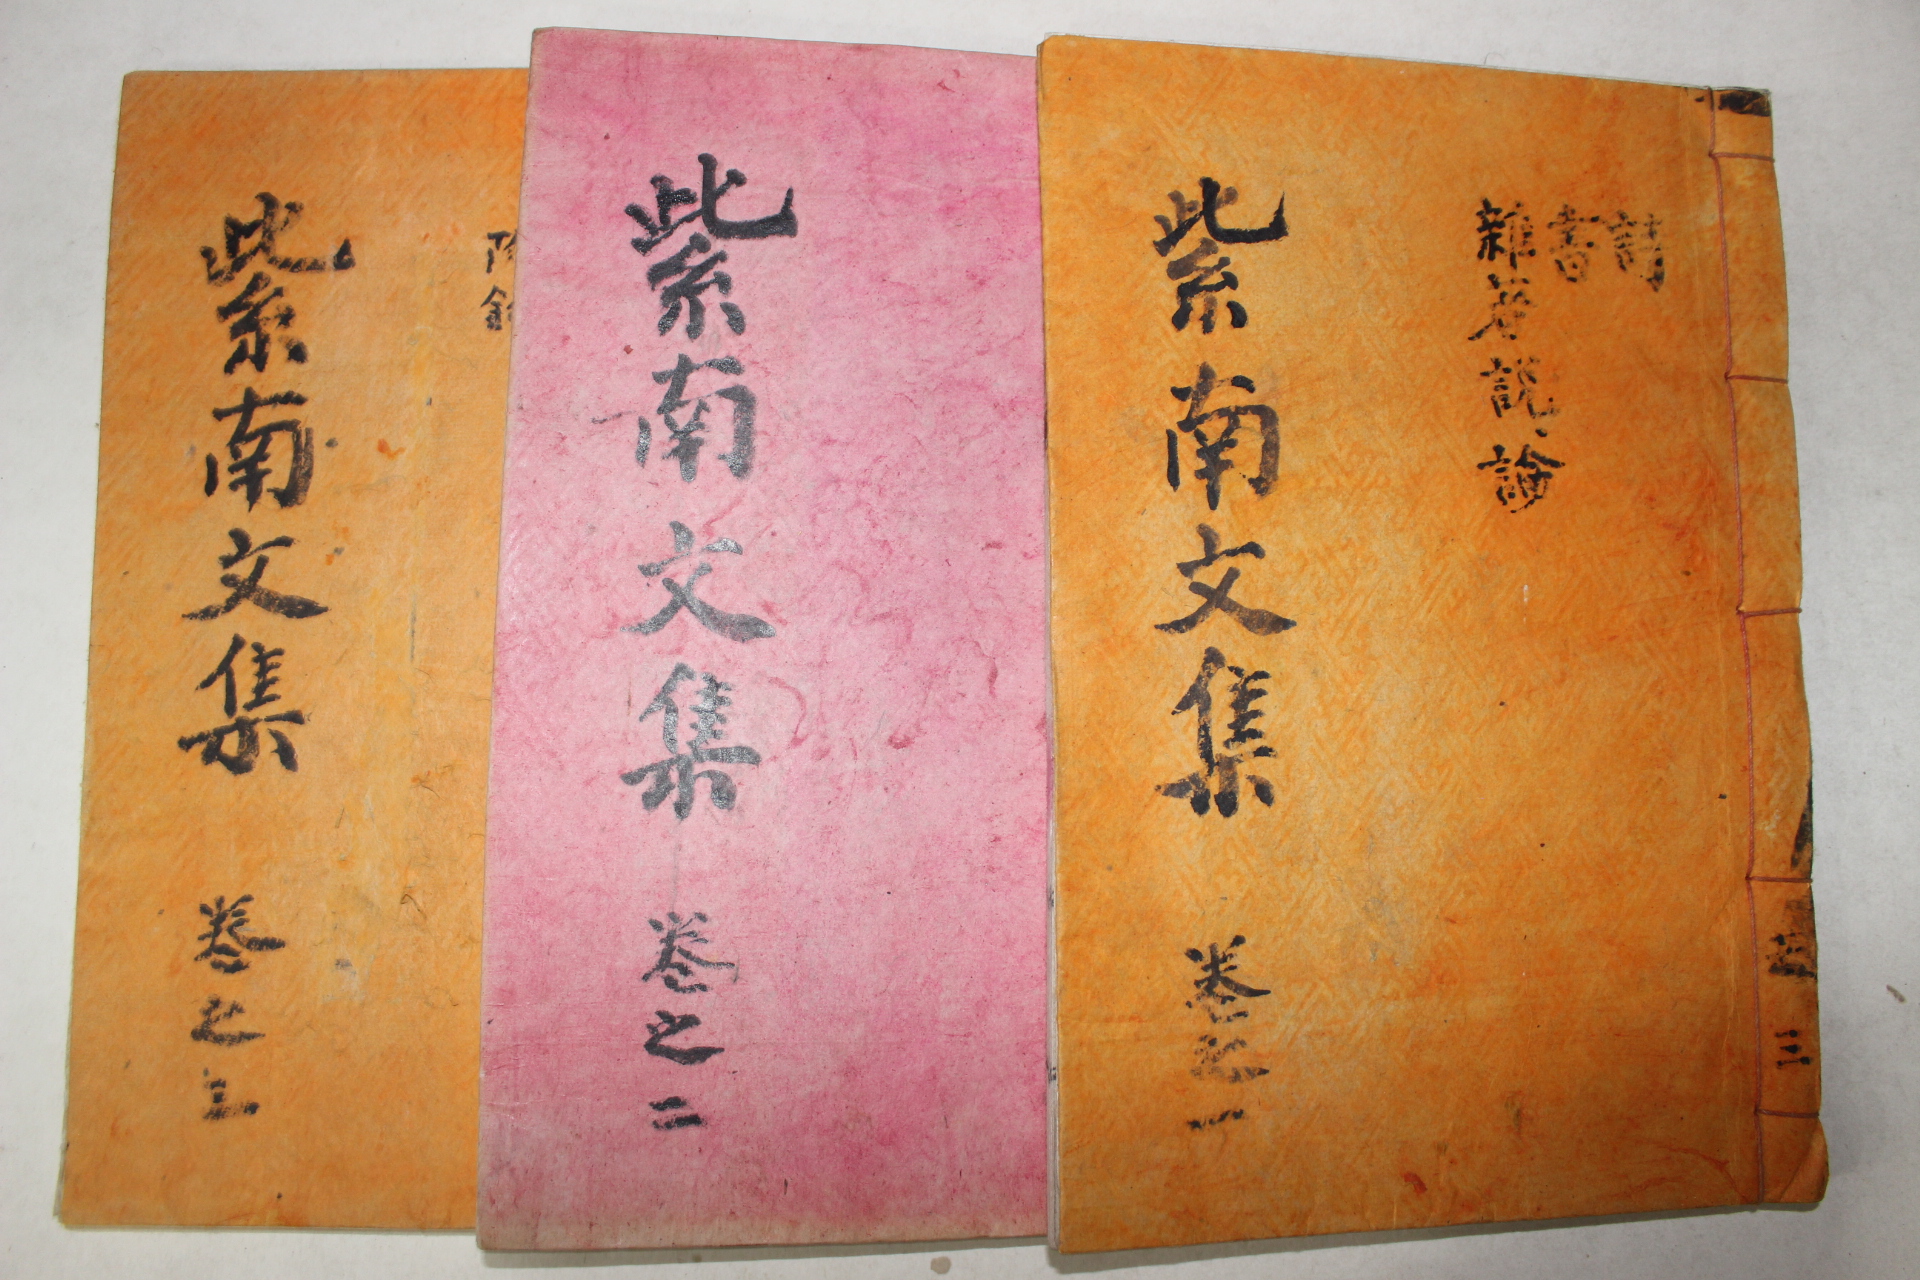 詩
書
雜著說論
紫南文集 卷之一
三
紫南文集 卷之二
附
紫南文集 卷之三